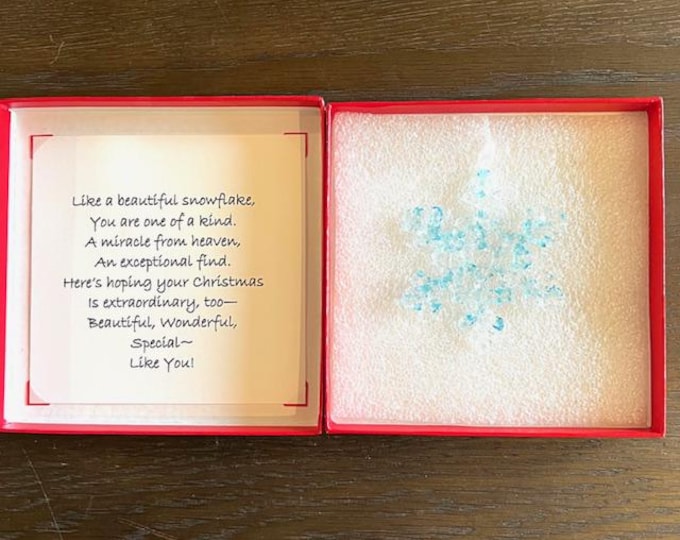 Like a beautiful snowflake,
You are one of a kind.
A miracle from heaven,
An exceptional find.
Here's hoping your Christmas
Is extraordinary, too—
Beautiful, Wonderful,
Special~
Like You!